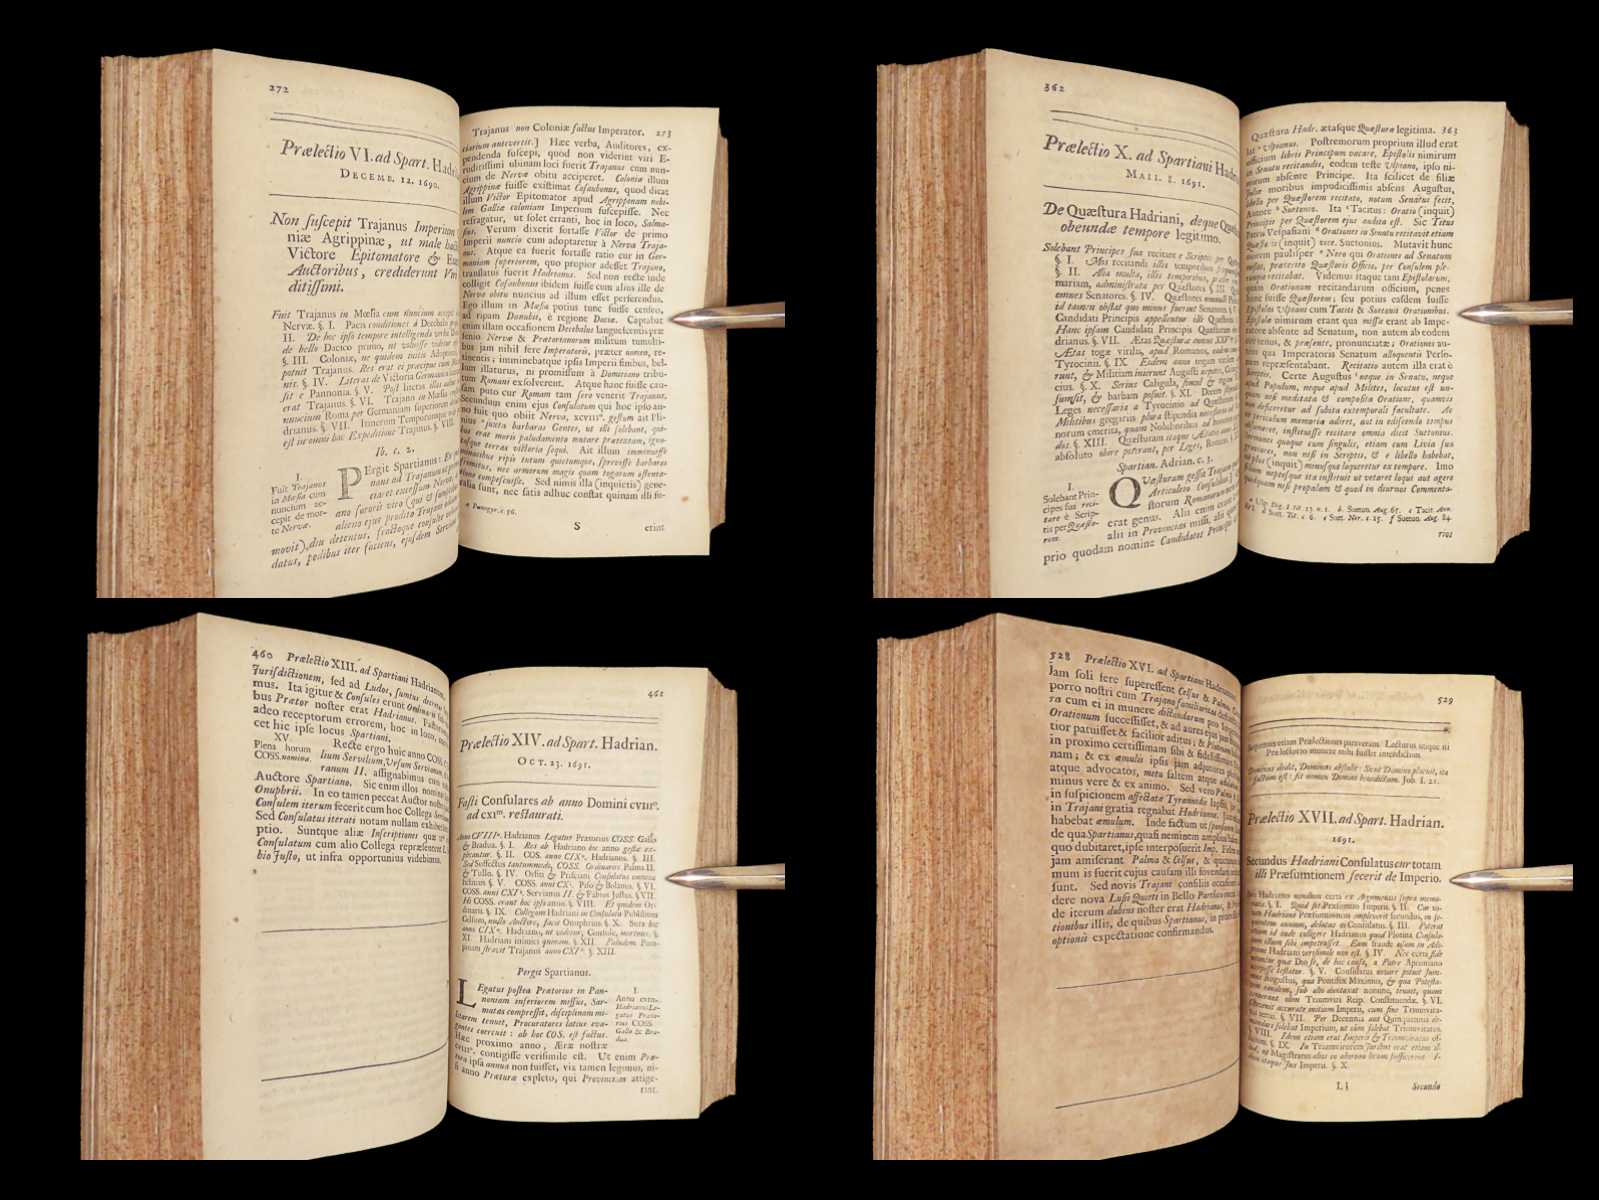 272
Prælectio VI. ad Spart. Hadri
DECEMB. 12. 1690.
Non suscepit Trajanus Imperium
niæ Agrippinæ, ut male
Victore Epitomatore &
Auctoribus, crediderunt Viri
ditissimi.
Fuit Trajanus in Mœsia cum nuncium accepit
Nervæ. §. I. Pacis conditiones à Decebalo
II. De hoc ipso tempore intelligenda verba
de bello Dacico primo, ut voluisse videtur
§. III. Coloniæ, ne quidem initio Adoptionis
potuit Trajanus. Res erat ei præcipue cum
nis. §. IV. Literas de Victoria Germanica
sit e Pannonia. §. V. Post literas illas
erat Trajanus. §. VI. Trajano in Mœsia
nuncium Roma per Germaniam superiorem
drianus. §. VII. Itinerum Temporumque
est in omni hac Expeditione Trajani. §. VIII.
Ib. c. 2.
I.
Fuit Trajanus
in Mœsia cum
nuncium ac-
cepit de mor-
te Nervæ.
Pergit Spartianus: Ex
nono ad Trajanum
ciaret excessum Nervæ,
ano sororis viro (qui &
alieno ejus prodito Trajani
movit), diu detentus, fractoque consulte
datus, pedibus iter faciens, ejusdem Serviani
Trajanus non Coloniæ factus Imperator. 273
ciarium antevertit.] Hæc verba, Auditores, ex-
pendenda suscepi, quod non viderint viri E-
ruditissimi ubinam loci fuerit Trajanus cum nun-
cium de Nervæ obitu acciperet. Coloniæ illum
Agrippinæ fuisse existimat Casaubonus, quod dicat
illum Victor Epitomator apud Agrippinam nobi-
lem Galliæ coloniam Imperium suscepisse. Nec
refragatur, ut solet erranti, hoc in loco, Salma-
sius. Verum dixerit fortasse Victor de primo
Imperii nuncio cum adoptaretur à Nerva Traja-
nus. Atque ea fuerit fortasse ratio cur in Ger-
maniam superiorem, quo propior adesset Trajano,
translatus fuerit Hadrianus. Sed non recte inde
colligit Casaubonus ibidem fuisse cum alius ille de
Nervæ obitu nuncius ad illum esset perferendus.
Ego illum in Mœsia potius tunc fuisse censeo,
ad ripam Danubii, è regione Daciæ. Captabat
enim illam occasionem Decebalus languescentis præ
senio Nervæ & Prætorianorum militum tumulti-
bus jam nihil fere Imperatoris, præter nomen, re-
tinentis; imminebatque ipsis Imperii finibus, bel-
lum illaturus, ni promissum à Domitiano tribu-
tum Romani exsolverent. Atque hanc fuisse cau-
sam puto cur Romam tam sero venerit Trajanus.
Secundum enim ejus Consulatum qui hoc ipso an-
no fuit quo obiit Nerva, XCVIIIº. gestum ait Pli-
nius a juxta barbaras Gentes, ut illi solebant, qui-
bus erat moris paludamento mutare prætextam, igno-
tasque terras victoria sequi. Ait illum imminuisse
minacibus ripis tutum quietumque, sprevisse barbaros
fremitus, nec armorum magis quam togarum ostenta-
tione compescuisse. Sed nimis illa (inquietis) gene-
ralia sunt, nec satis adhuc constat quinam illi fu-
a Panegyr. c. 56.
S
erint
362
Prælectio X. ad Spartiani Hadr
MAII. 8. 1691.
De Quæstura Hadriani, deque
obeundæ tempore legitimo.
Solebant Principes sua recitare e Scriptis per Quæ
§. I. Mos recitandi illis temporibus
§. II. Alia multa, illis temporibus,
mariam, administrata per Quæstores §. III.
omnes Senatores. §. IV. Quæstores nonnulli
id tamen obstat quo minus fuerint Senatores §.
Candidati Principis appellentur illi Quæstores
Hanc ipsam Candidati Principis Quæsturam
drianus. §. VII. Ætas Quæsturæ annus XXV
Ætas togæ virilis, apud Romanos, eadem
Tyrocinii. §. IX. Eodem anno togam virilem
runt, & Militiam inierunt Augusti nepotes,
cius. §. X. Serius Caligula, simul & togam
sumsit, & barbam posuit. §. XI.
Leges necessaria a Tyrocinio ad Quæsturam
Militibus gregariis plura stipendia
norum emerita, quam Nobilioribus ad honores
dos. §. XIII. Quæsturam itaque Ætatis anno
absoluto obire poterant, per Leges, Romani.
Spartian. Adrian. c. 3.
I.
Solebant Prin-
cipes sua reci-
tare è Scrip-
tis per Quæsto-
rem.
Quæsturam gessit Trajano
Articuleio Consulibus]
storum Romanorum
erat genus. Alii enim erant
alii in Provincias missi, alii
prio quodam nomine Candidatos Principis
Quæstura Hadr. ætasque Quæsturæ legitima. 363
let a Ulpianus. Postremorum proprium illud erat
officium libris Principum vacare, Epistolis nimirum
in Senatu recitandis, eodem teste Ulpiano, ipso ni-
mirum absente Principe. Ita scilicet de filiæ
Juliæ moribus impudicissimis absens Augustus,
libello per Quæstorem recitato, notum Senatui fecit,
Autore b Suetonio. Ita c Tacitus: Oratio (inquit)
Principis per Quæstorem ejus audita est. Sic Titus
Patris Vespasiani d Orationes in Senatu recitavit etiam
Quæstoris (inquit) vice. Suetonius. Mutavit hunc
morem paulisper e Nero qui Orationes ad Senatum
missas, præterito Quæstoris Officio, per Consulem ple-
rumque recitabat. Videmus itaque tam Epistolarum,
quam Orationum recitandarum officium, penes
hunc fuisse Quæstorem; seu potius easdem fuisse
Epistolas Ulpiani cum Taciti & Suetonii Orationibus.
Epistolæ nimirum erant qua missæ erant ab Impe-
ratore absente ad Senatum, non autem ab eodem
ore tenus, & præsente, pronunciatæ; Orationes au-
tem qua Imperatoris Senatum alloquentis Perso-
nam repræsentabant. Recitatio autem illa erat è
Scriptis. Certe Augustus f neque in Senatu, neque
apud Populum, neque apud Milites, locutus est un-
quam nisi meditata & composita Oratione, quamvis
non deficeretur ad subita extemporali facultate. Ac
ne periculum memoriæ adiret, aut in ediscendo tempus
absumeret, instituisse recitare omnia dicit Suetonius.
Sermones quoque cum singulis, etiam cum Livia sua
graviores, non nisi in Scriptis, & e libello habebat,
ne plus (inquit) minusque loqueretur ex tempore. Imo
& neptesque ita instituit ut vetaret loqui aut agere
quidquam nisi propalam & quod in diurnos Commenta-
a Ulp. Dig. I. tit. 13. n. 1. b Sueton. Aug. 65. c Tacit. Ann.
d Suet. Tit. c. 6. e Suet. Ner. c. 15. f Sueton. Aug. 84.
rios
460 Prælectio XIII. ad Spartiani Hadrianum.
Jurisdictionem, sed ad Ludos, sumtus decretus
mus. Ita igitur & Consules erunt Ordinarii
bus Prætor noster erat Hadrianus.
adeo receptorum errorem, hoc in loco,
cet hic ipse locus Spartiani.
XV.
Plena horum
COSS. nomina.
Recte ergo huic anno COSS.
lium Servilium, Ursum Servianum,
ranum II. assignabimus cum
Auctore Spartiano. Sic enim illos
Onuphrii. In eo tamen peccat Auctor
Consulem iterum fecerit cum hoc Collega
Sed Consulatus iterati notam nullam exhibet
ptio. Suntque aliæ Inscriptiones quæ
Consulatum cum alio Collega repræsentent
bio Justo, ut infra opportunius videbimus.
461
Prælectio XIV. ad Spart. Hadrian.
OCT. 23. 1691.
Fasti Consulares ab anno Domini CVIIIº.
ad CXIᵐ. restaurati.
Anno CVIIIº. Hadrianus Legatur Prætorius COSS. Gallo
& Bradua. §. I. Res ab Hadriano hoc anno gestæ ex-
plicantur. §. II. COS. anno CIXº. Hadrianus. §. III.
Sed Suffectus tantummodo, COSS. Ordinariis Palma II.
& Tullo. §. IV. Orfiti & Prisciani Consulatus omnino
fictitius §. V. COSS. anni CXⁱ. Piso & Bolanus. §. VI.
COSS. anni CXIⁱ. Servianus II. & Fabius Justus. §. VII.
Hi COSS. erant hoc ipso anno. §. VIII. Et quidem Or-
dinarii. §. IX. Collegam Hadriani in Consulatu Publilium
Celsum, nullo Auctore, facit Onuphrius. §. X. Sura hoc
anno CXIº. Hadriano, ut videtur, Consule, mortuus. §.
XI. Hadriani inimici quinam. §. XII. Paludem Pom-
ptinam stravit Trajanus anno CXIº. §. XIII.
Pergit Spartianus.
Legatus postea Prætorius in Pan-
noniam inferiorem missus, Sar-
matas compressit, disciplinam mi-
litarem tenuit, Procuratores latius eva-
gantes coercuit: ab hoc COS. est factus.
Hæc proximo anno, Æræ nostræ
CVIIIº. contigisse verisimile est. Ut enim Præ-
tura ipsa annua non fuisset, vix tamen legimus, ni-
si anno Præturæ expleto, qui Provinciam attige-
I.
Anno CVIIIº.
Hadrianus Le-
gatus Præto-
rius COSS.
Gallo & Bra-
dua.
rint.
528 Prælectio XVI. ad Spartiani Hadrianum.
Jam soli fere superessent Celsus & Palma.
porro nostri cum Trajano familiaritas
ra cum ei in munere dictandarum pro
Orationum successisset, & ad aures ejus
tior patuisset & facilior aditus; & Plotinam
in proximo certissimam sibi & fidelissimam
nam; & ex æmulis ipsis jam adjutores
atque advocatos, metu saltem atque
minus vere & ex animo. Sed vero Palma &
in suspicionem affectatæ Tyrannidis lapsis,
in Trajani gratia regnabat Hadrianus.
habebat æmulum. Inde factum ut
de qua Spartianus, quasi neminem
quo dubitaret, ipse interposuerit Imp.
jam amiserant Palma & Celsus, &
mum is fuerit cujus causam illi fovendam
sunt. Sed novis Trajani consiliis
dere nova Lusii Quieti in Bello Parthico
de iterum dubius noster erat Hadrianus,
tionibus illis, de quibus Spartianus, in
optionis expectatione confirmandus.
529
Sequentes etiam Prælectiones paraveram. Lecturus utique ni
Prælectorio munere mihi fuisset interdictum.
Dominus dedit, Dominus abstulit: Sicut Domino placuit, ita
factum est: sit nomen Domini benedictum. Job. I. 21.
Prælectio XVII. ad Spart. Hadrian.
1691.
Secundus Hadriani Consulatus cur totam
illi Præsumtionem fecerit de Imperio.
§. I. Quid sit Præsumtio Imperii. §. II. Cur to-
tam Hadriani Præsumtionem impleverit secundus, in se-
quentem annum, delatus ei Consulatus. §. III. Poterat
etiam id inde colligere Hadrianus quod Plotina Consula-
tum illum sibi impetrasset. Eam fraude usam in Ado-
ptione Hadriani verisimile non est. §. IV. Nec certa fide
nituntur quæ Dio se, de hac causa, a Patre Aproniano
accepisse testatur. §. V. Consulatus novare potuit sum-
§. VI.
§. VII. Per Decennia aut Quinquennia de-
Imperium, ut olim solebat Triumviratus.
§. VIII. Idem etiam erat Imperii & Triumviratus
§. IX. In Triumvirorum Juribus erat etiam
Jus Imperii. §. X.
L l
Secundo